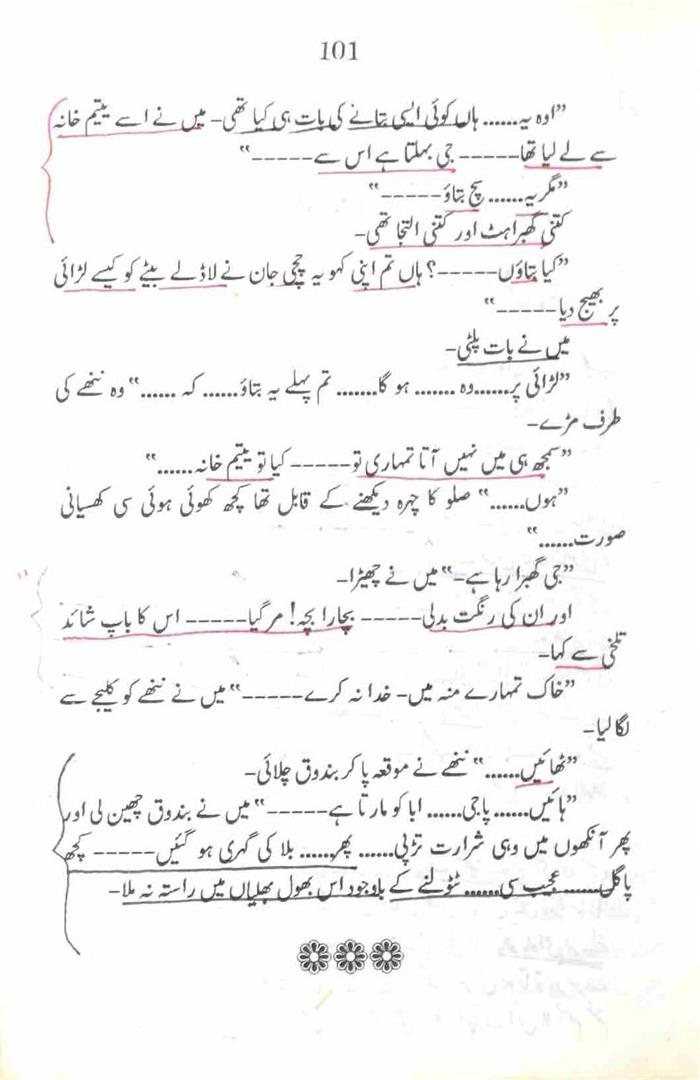 101
”اوہ یہ...... ہاں کوئی ایسی بتانے کی بات ہی کیا تھی۔ میں نے اسے یتیم خانہ
سے لے لیا تھا------ جی بہلتا ہے اس سے------“
”مگر یہ...... سچ بتاؤ------“
کتنی گھبراہٹ اور کتنی التجا تھی۔
”کیا بتاؤں-----؟ ہاں تم اپنی کہو یہ چچی جان نے لاڈلے بیٹے کو کیسے لڑائی
پر بھیج دیا------“
میں نے بات پلٹی۔
”لڑائی پر......وہ ....... ہو گا....... تم پہلے یہ بتاؤ...... کہ ......“ وہ ننھے کی
طرف مڑے۔
”سمجھ ہی میں نہیں آتا تمہاری تو----- کیا تو یتیم خانہ......“
”ہوں......“ صلو کا چہرہ دیکھنے کے قابل تھا کچھ کھوئی ہوئی سی کھسیانی
صورت......“
”جی گھبرا رہا ہے۔“ میں نے چھیڑا۔
اور ان کی رنگت بدلی----- بچارا بچہ! مر گیا----- اس کا باپ شائد
تلخی سے کہا۔
”خاک تمہارے منہ میں۔ خدا نہ کرے-----“ میں نے ننھے کو کلیجے سے
لگا لیا۔
”ٹھائیں......“ ننھے نے موقعہ پا کر بندوق چلائی۔
”ہائیں...... پاجی...... ابا کو مارتا ہے-----“ میں نے بندوق چھین لی اور
پھر آنکھوں میں وہی شرارت تڑپی...... پھر...... بلا کی گہری ہو گئیں----- کچھ
پاگل...... عجیب سی...... ٹٹولنے کے باوجود اس بھول بھلیاں میں راستہ نہ ملا۔